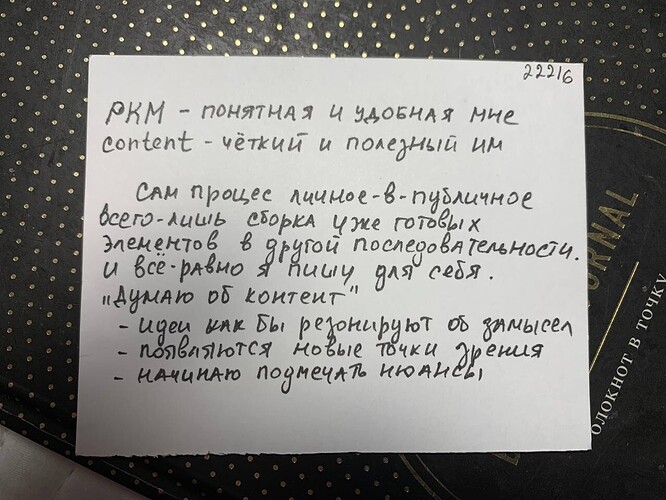 22216
PKM - понятная и удобная мне
content - чёткий и полезный им
Сам процес личное-в-публичное
всего-лишь сборка уже готовых
элементов в другой последовательности.
И всё-равно я пишу для себя.
„Думаю об контент"
- идеи как бы резонируют об замысел
- появляются новые точки зрения
- начинаю подмечать нюансы
JOURNAL
БЛОКНОТ В ТОЧКУ